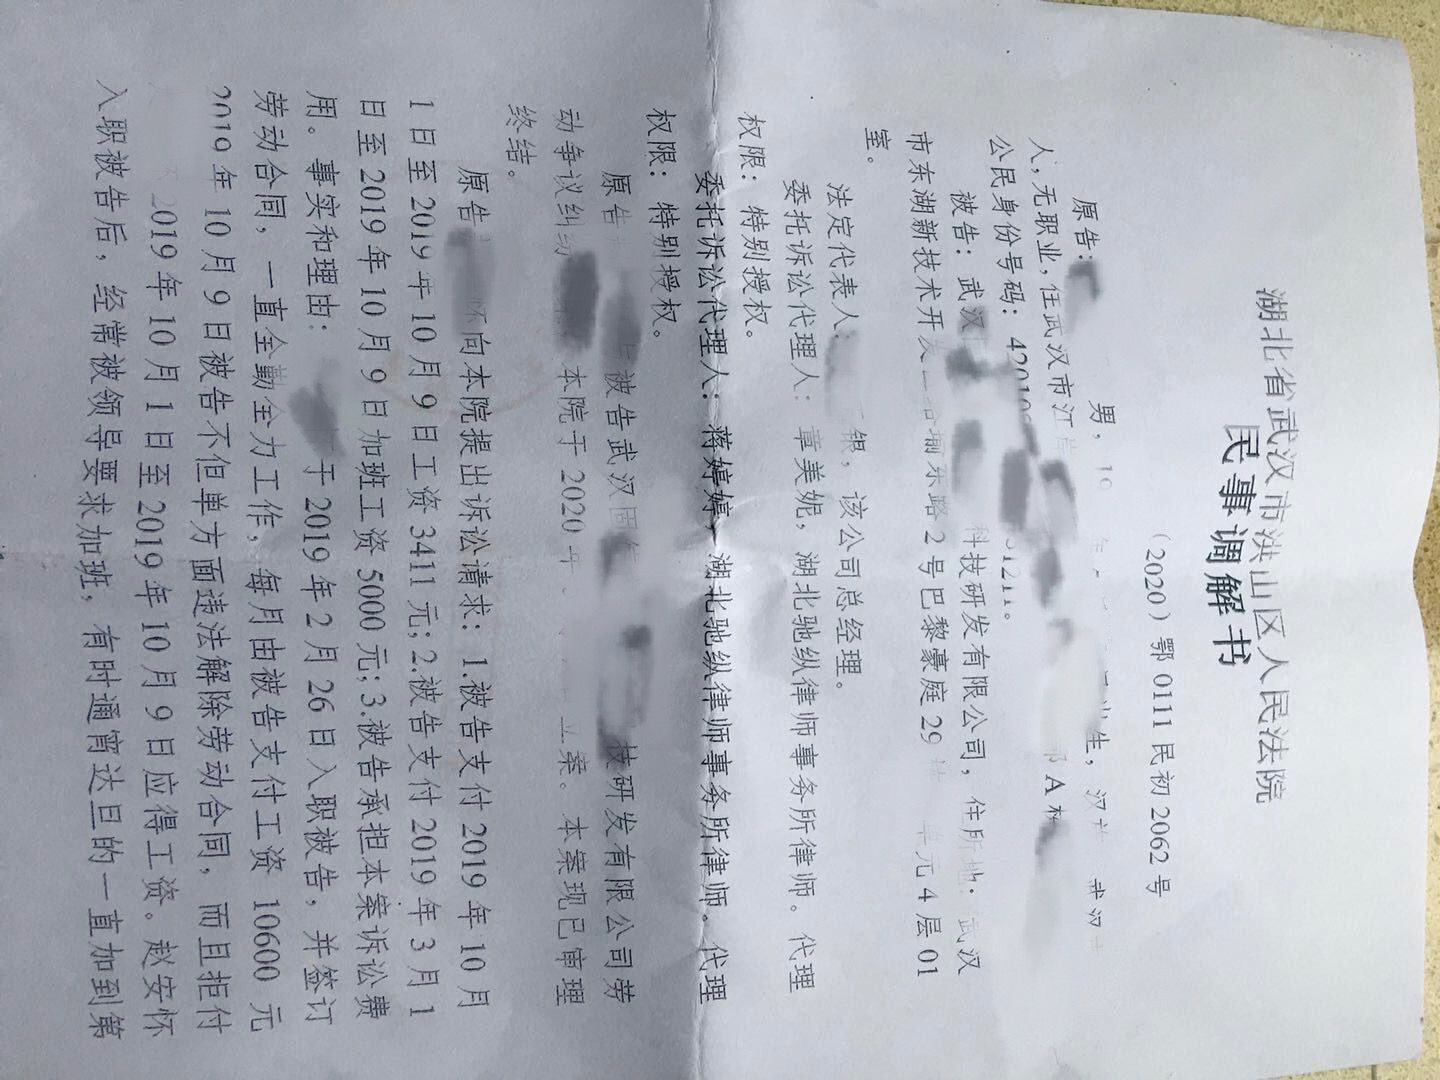 湖北省武汉市洪山区人民法院
民事调解书
（2020）鄂 0111 民初 2062 号
原告： 男， 生， 汉 武汉
人,无职业，住武汉市江 A
公民身份号码：
被告：武汉 科技研发有限公司，住所地：武汉
市东湖新技术开发 东路 2 号巴黎豪庭 29 单元 4 层 01
室。
法定代表人 银，该公司总经理。
委托诉讼代理人：章美妮，湖北驰纵律师事务所律师。代理
权限：特别授权。
委托诉讼代理人：蒋婷婷，湖北驰纵律师事务所律师。代理
权限：特别授权。
原告 被告武汉 技研发有限公司劳
动争议纠纷 本院于 2020 年 立案。本案现已审理
终结。
原告 向本院提出诉讼请求：1.被告支付 2019 年 10 月
1 日至 2019 年 10 月 9 日工资 3411 元；2.被告支付 2019 年 3 月 1
日至 2019 年 10 月 9 日加班工资 5000 元；3.被告承担本案诉讼费
用。事实和理由： 于 2019 年 2 月 26 日入职被告，并签订
劳动合同，一直全勤全力工作，每月由被告支付工资 10600 元
2019 年 10 月 9 日被告不但单方面违法解除劳动合同，而且拒付
2019 年 10 月 1 日至 2019 年 10 月 9 日应得工资。赵安怀
入职被告后，经常被领导要求加班，有时通宵达旦的一直加到第